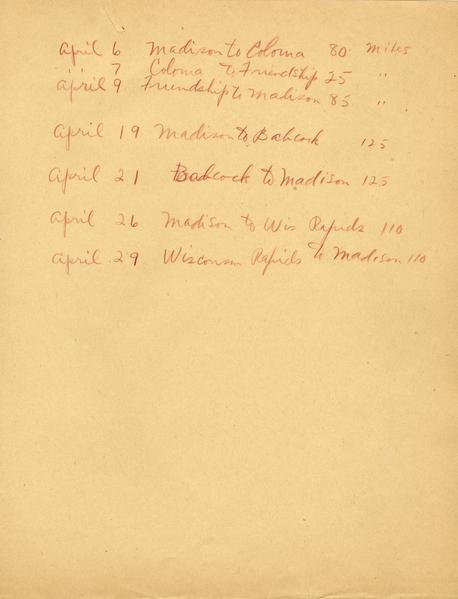 April 6 Madison to Coloma 80 Miles
" 7 Coloma to Friendship 25 "
April 9 Friendship to Madison 85 "
April 19 Madison to Babcock 125
April 21 Babcock to Madison 125
April 26 Madison to Wis Rapids 110
April 29 Wisconsin Rapids to Madison 110